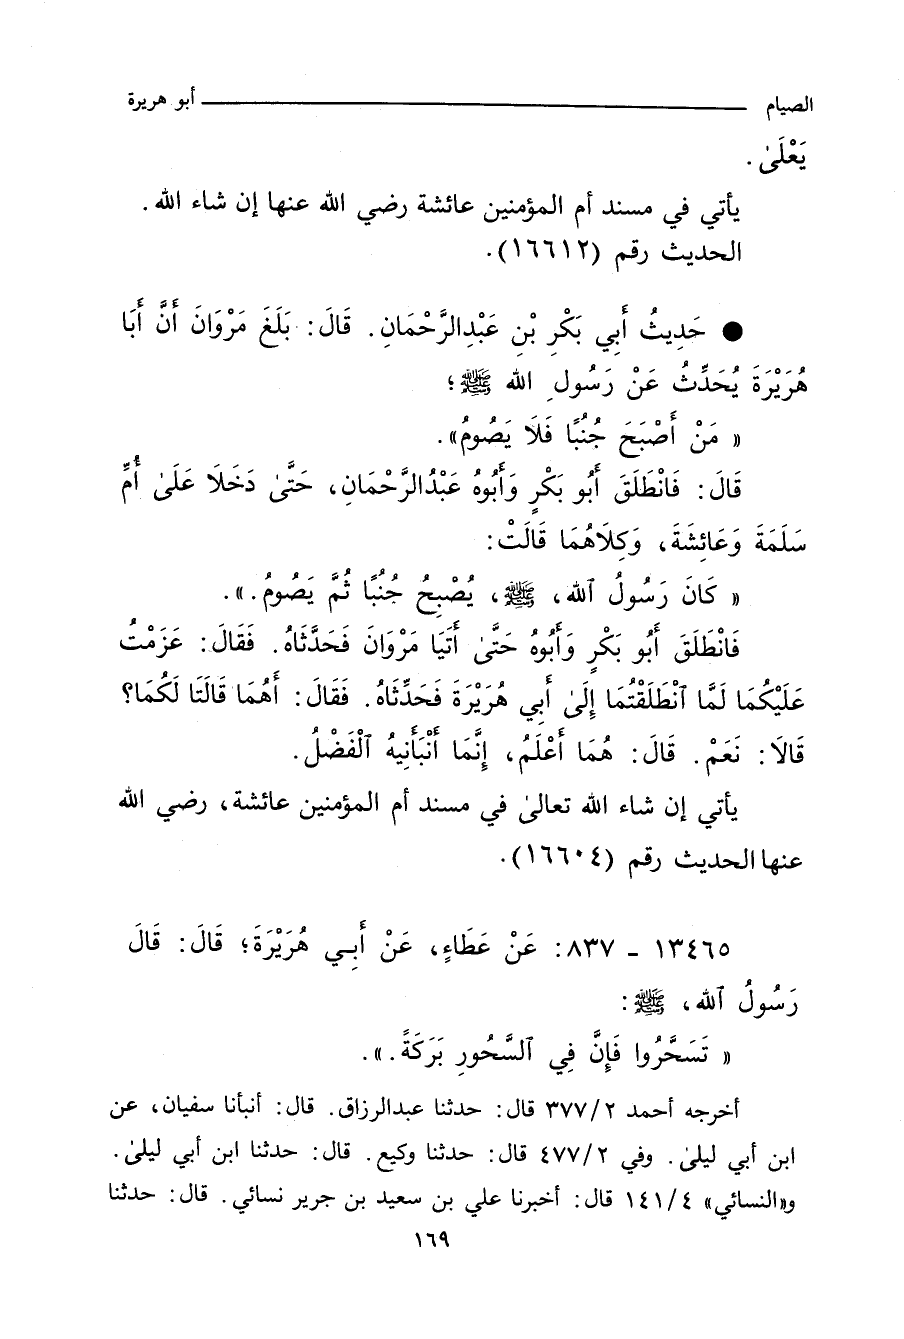 الصيام ــــــــــــــــــــــــــــــــ أبو هريرة
يَعْلَىٰ .
يأتي في مسند أم المؤمنين عائشة رضي الله عنها إن شاء الله .
الحديث رقم (١٦٦١٢).
● حَدِيثُ أَبِي بَكْرِ بْنِ عَبْدِالرَّحْمَانِ. قَالَ: بَلَغَ مَرْوَانَ أَنَّ أَبَا
هُرَيْرَةَ يُحَدِّثُ عَنْ رَسُولِ الله ﷺ؛
« مَنْ أَصْبَحَ جُنُبًا فَلَا يَصُومُ».
قَالَ: فَانْطَلَقَ أَبُو بَكْرٍ وَأَبُوهُ عَبْدُالرَّحْمَانِ، حَتَّىٰ دَخَلَا عَلَىٰ أُمِّ
سَلَمَةَ وَعَائِشَةَ، وَكِلَاهُمَا قَالَتْ:
« كَانَ رَسُولُ ٱلله، ﷺ، يُصْبِحُ جُنُبًا ثُمَّ يَصُومُ.».
فَانْطَلَقَ أَبُو بَكْرٍ وَأَبُوهُ حَتَّىٰ أَتَيَا مَرْوَانَ فَحَدَّثَاهُ. فَقَالَ: عَزَمْتُ
عَلَيْكُمَا لَمَّا ٱنْطَلَقْتُمَا إِلَىٰ أَبِي هُرَيْرَةَ فَحَدِّثَاهُ. فَقَالَ: أَهُمَا قَالَتَا لَكُمَا؟
قَالَا: نَعَمْ. قَالَ: هُمَا أَعْلَمُ، إِنَّمَا أَنْبَأَنِيهُ ٱلْفَضْلُ.
يأتي إن شاء الله تعالىٰ في مسند أم المؤمنين عائشة، رضي الله
عنها الحديث رقم (١٦٦٠٤).
١٣٤٦٥ - ٨٣٧: عَنْ عَطَاءٍ، عَنْ أَبِي هُرَيْرَةَ؛ قَالَ: قَالَ
رَسُولُ ٱلله، ﷺ:
« تَسَحَّرُوا فَإِنَّ فِي ٱلسَّحُورِ بَرَكَةً.».
أخرجه أحمد ٣٧٧/٢ قال: حدثنا عبدالرزاق. قال: أنبأنا سفيان، عن
ابن أبي ليلىٰ. وفي ٤٧٧/٢ قال: حدثنا وكيع. قال: حدثنا ابن أبي ليلىٰ.
و«النسائي» ١٤١/٤ قال: أخبرنا علي بن سعيد بن جرير نسائي. قال: حدثنا
١٦٩